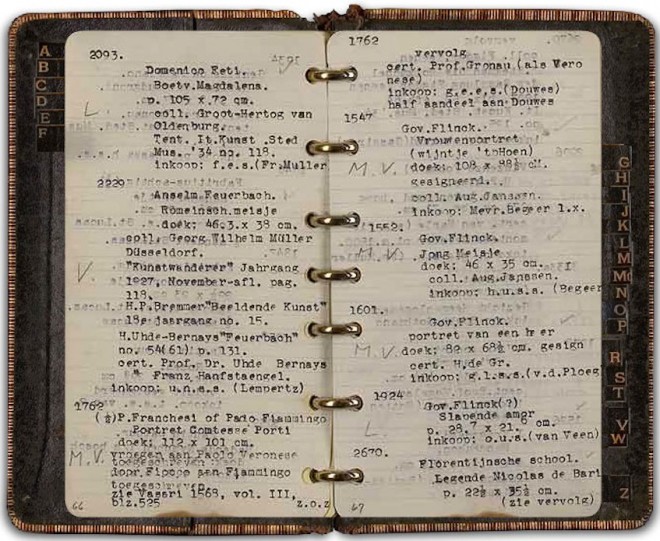 A
B
C
D
E
F
2093.
Domenico Feti.
Boetv.Magdalena.
p. 105 x 72 cm.
L
coll. Groot-Hertog van
Oldenburg.
Tent. It.Kunst Sted
Mus. 34 no. 118.
inkoop: f.e.s.(Fr.Muller
2229
Anselm Feuerbach.
Romeinsch.meisje
doek: 46.3.x 38 cm.
coll. Georg Wilhelm Müller
Düsseldorf.
V.
"Kunstwanderer" Jahrgang
1927, November-afl. pag.
118.
H.P.Bremmer"Beeldende Kunst"
18e jaargang no. 15.
H.Uhde-Bernays"Feuerbach"
no. 54(61) p. 131.
cert. Prof. Dr. Uhde Bernays
" Franz Hanfstaengel.
inkoop: u.n.s.s (Lempertz)
1762
(½)P.Franchesi of Paolo Fiammingo
Portret Comtesse Porti
doek: 112 x 101 cm.
M.V.
vroegen aan Paolo Veronese
toegeschreven
door Fiocco aan Fiammingo
toegeschreven.
zie Vasari 1568, vol. III,
blz.525
z.o.z
66
1762
vervolg
cert. Prof.Gronau.(als Vero
nese)
inkoop: g.e.e.s.(Douwes)
half aandeel aan Douwes
1547
Gov.Flinck.
Vrouwenportret
(wijntje 'tHoen)
M.V.
doek: 108 x 88½ cM.
gesigneerd.
coll. Aug.Janssen.
inkoop: Mevr.Begeer l.x.
1552.
Gov.Flinck.
M.V.
Jong Meisje
doek: 46 x 35 cm.
coll. Aug.Janssen.
inkoop: h.u.s.s. (Begeer
1601.
Gov.Flinck.
portret van een heer
M.V.
doek: 82 x 68½ cm. gesign
cert. H.de Gr.
inkoop: g.l.s.s.(v.d.Ploeg
1924
Gov.Flinck(?)
Slapende amor
L
p. 28.7 x 21. 6 cm.
inkoop: o.u.s.(van Veen)
2670.
Florentijnsche school.
Legende Nicolas de Bari
p. 22½ x 35½ cm.
(zie vervolg)
67
G
H
I
J
K
L
M
Mc
N
O
P
R
S
T
V
W
Z